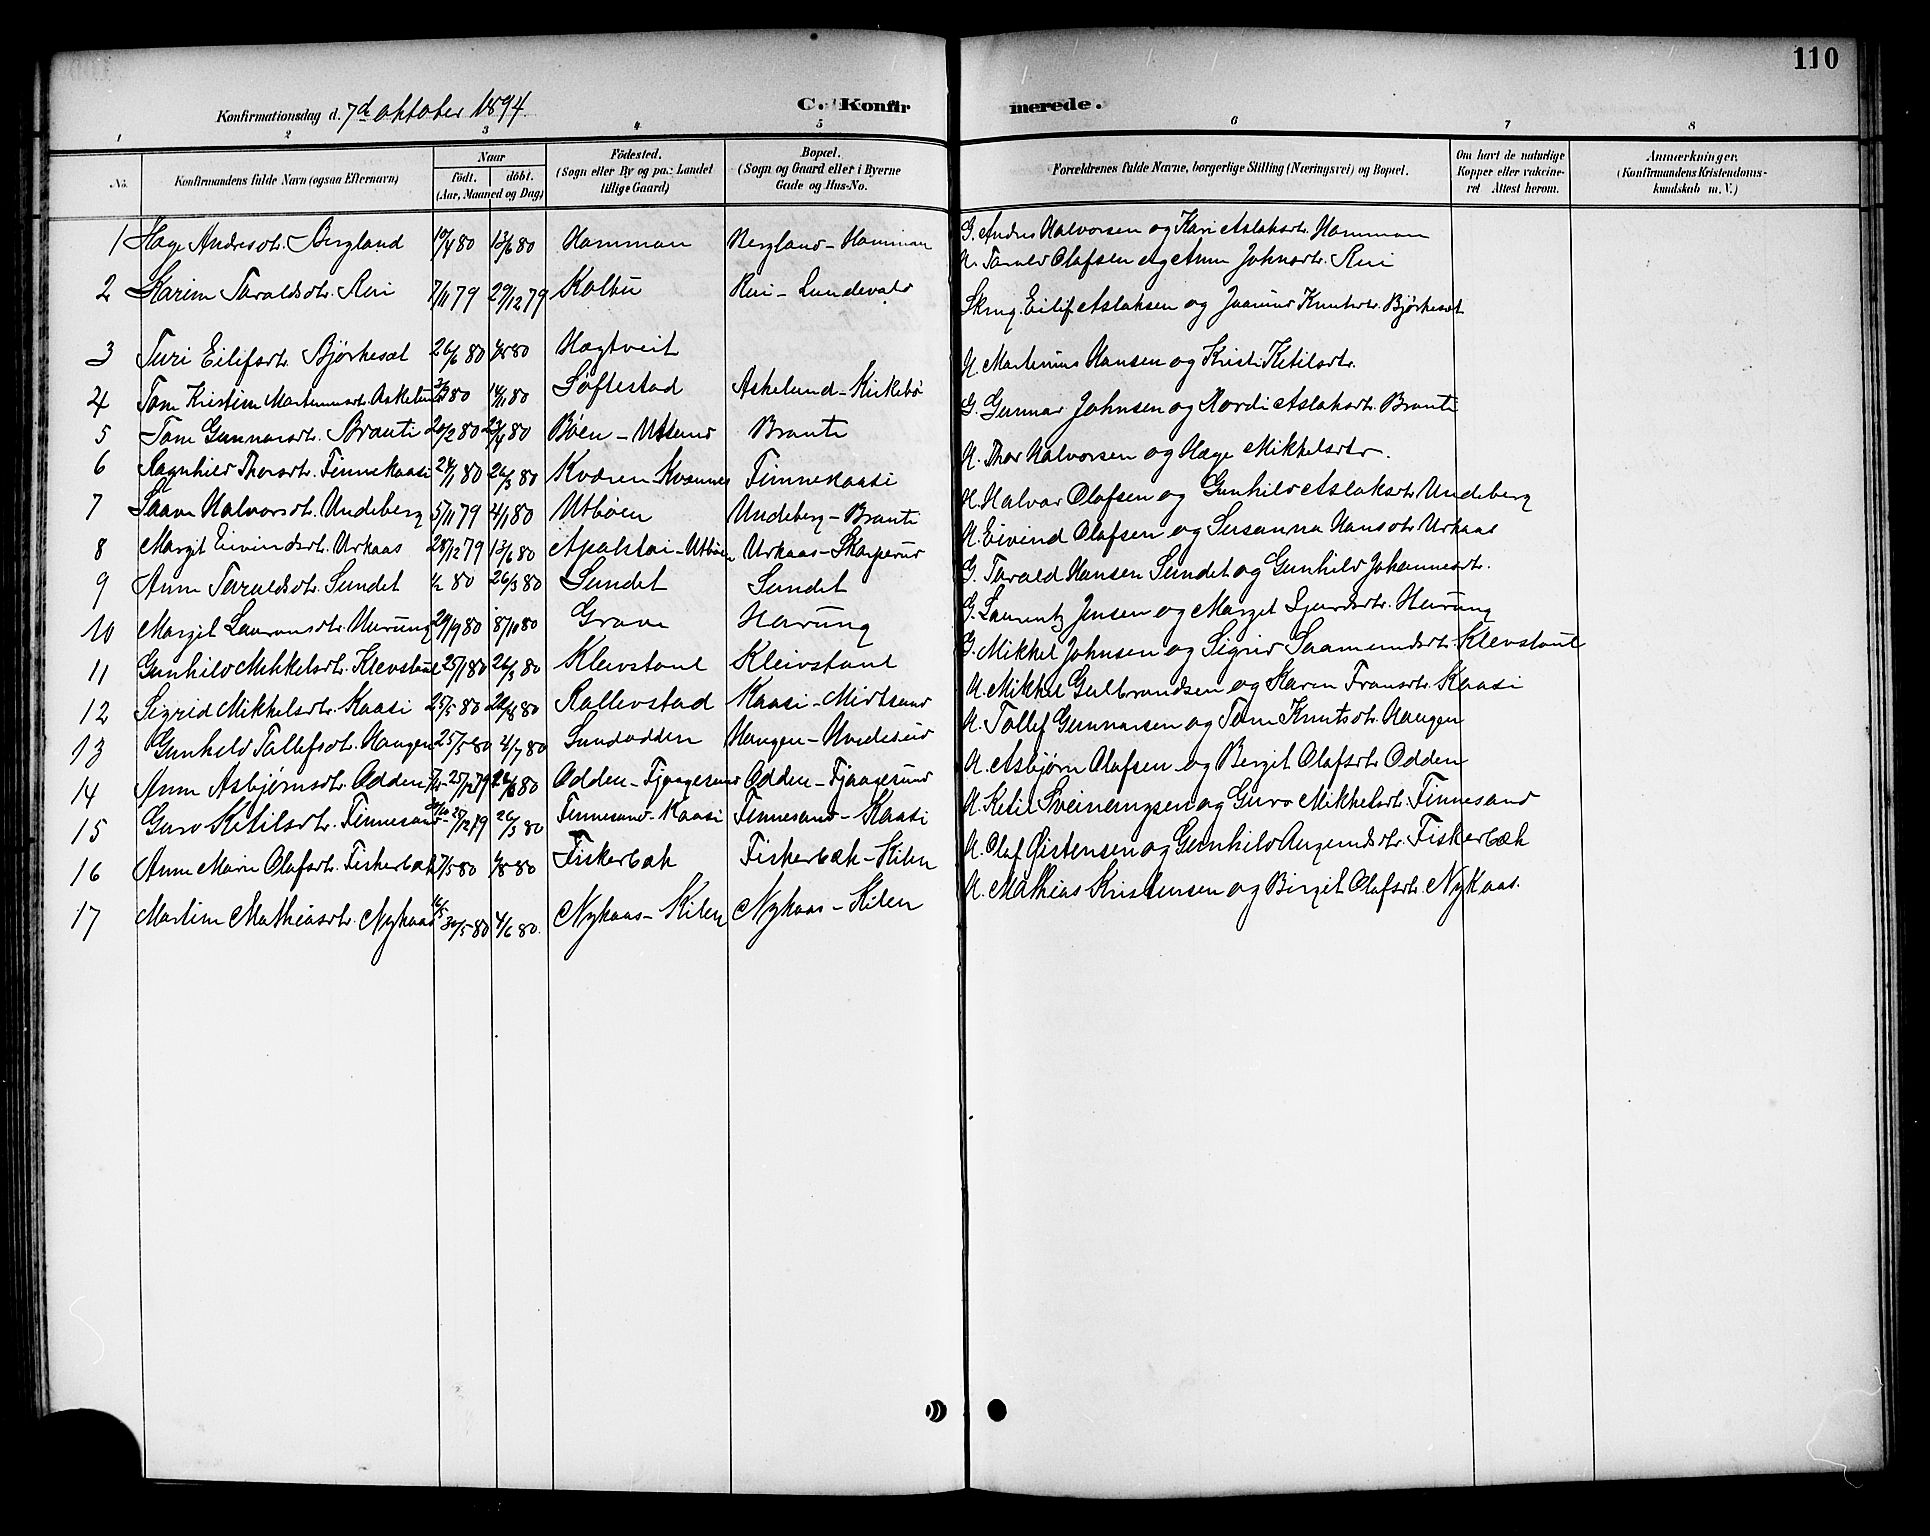 110
Konfirmationsdag d. 7de oktober 1894.
C. Konfirmerede.
1 2 3 4 5 6 7 8
No.
Konfirmandens fulde Navn (ogsaa Efternavn)
Naar
födt. döbt.
(Aar, Maaned og Dag)
Födested.
(Sogn eller By og paa Landet
tillige Gaard)
Bopæl.
(Sogn og Gaard eller i Byerne
Gade og Hus-No.
Forældrenes fulde Navne, borgerlige Stilling (Næringsvei) og Bopæl.
Om havt de naturlige
Kopper eller vakcine-
ret Attest herom.
Anmærkninger.
(Konfirmandens Kristendoms-
kundskab m. V.)
1 Hæge Andresdtr. Bergland 10/4 80 13/6 80 Hamman Bergland - Hamman G. Andres Halvorsen og Kari Aslaksdtr. Hamman
2 Karine Taraldsdtr. Rui 7/11 79 29/12 79 Kolbu Rui - Lundevald U. Tarald Olafsen og Anne Johnsdtr. Rui
3 Turi Eilifsdtr. Bjørkesæt 26/6 80 1/8 80 Hægtveit Skrug. Eilif Aslaksen og Knutsdtr. Bjørkesæt
4 Tone Kristine Martinusdtr. Askelund 80 14/11 80 Söftestad Askelund - Kirkebö U. Martinius Hansen og Kristi Ketilsdtr.
5 Tone Gunnarsdtr. Brauti 20/2 80 23/4 80 Böen - Utsund Brauti G. Gunnar Johnsen og Nordi Aslaksdtr. Brauti
6 Ragnhild Thorsdtr. Finnekaasi 24/1 80 26/3 80 Kvæven Kvannes Finnekaasi U. Thor Halvorsen og Hæge Mikkelsdtr.
7 Saave Halvorsdtr. Undeberg 5/11 79 4/1 80 Utböen Undeberg - Brauti U. Halvor Olafsen og Gunhild Aslaksdtr. Undeberg
8 Margit Eivindsdtr. Urkaas 28/12 79 13/6 80 Apalstøi - Utböen Urkaas - Skarperud U. Eivind Olafsen og Susanna Hansdtr. Urkaas
9 Anne Taraldsdtr. Sundet 1/2 80 26/3 80 Sundet Sundet G. Tarald Hansen Sundet og Gunhild Johannesdtr.
10 Margit Lauransdtr. Harung 29/9 80 8/10 80 Grave Harung G. Laurentz Jensen og Margit Sjurdsdtr. Harung
11 Gunhild Mikkelsdtr. Klevstaul 25/1 80 26/3 80 Kleivstaul Kleivstaul G. Mikkel Johnsen og Sigrid Saamundsdtr. Klevstaul
12 Sigrid Mikkelsdtr. Kaasi 25/5 80 22/8 80 Rallevstad Kaasi - Midtsund U. Mikkel Gulbrandsen og Karen Fransdtr. Kaasi
13 Gunhild Tallefsdtr. Haugen 25/5 80 4/7 80 Sundodden Haugen - Hvideseid U. Tallef Gunnarsen og Tone Knutsdtr. Haugen
14 Anne Asbjørnsdtr. Odden 25/12 79 26/3 80 Odden - Fjaagesund Odden - Fjaagesund U. Asbjørn Olafsen og Bergit Olafsdtr. Odden
15 Guro Ketilsdtr. Finnesand 28/12 79 26/3 80 Finnesand - Kaasi Finnesand - Kaasi U. Ketil Sveinungsen og Guro Mikkelsdtr. Finnesand
16 Anne Marie Olafsdtr. Fiskerbæk 7/5 80 1/8 80 Fiskerbæk Fiskerbæk - Kilen U. Olaf Øistensen og Gunhild Aumundsdtr. Fiskerbæk
17 Martine Mathiasdtr. Nykaas 16/5 - 30/5 80 4/6 80. Nykaas - Kilen Nykaas - Kilen U. Mathias Kristensen og Birgit Olafsdtr. Nykaas.